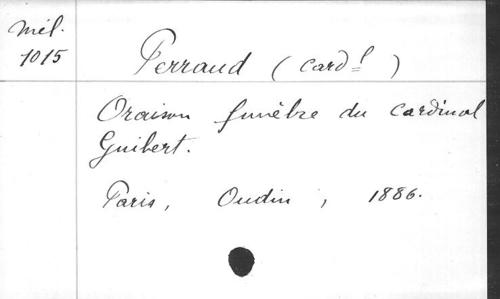 Mél.
1015
Perraud (Card.l)
Oraison funèbre du Cardinal
Guibert.
Paris, Oudin, 1886.